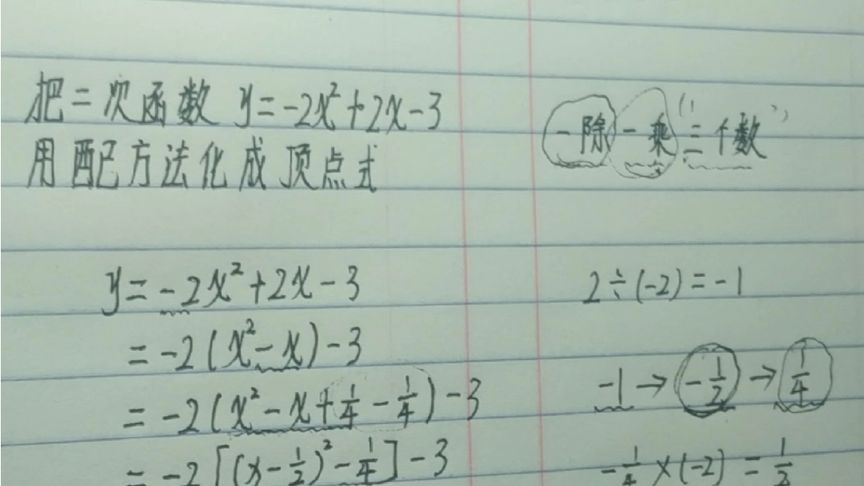 把二次函数 y=-2x²+2x-3
用配方法化成顶点式
y=-2x²+2x-3
=-2(x²-x)-3
=-2(x²-x+1/4-1/4)-3
=-2[(x-1/2)²-1/4]-3
一除一乘"三个数"
2÷(-2)=-1
-1→-1/2→1/4
-1/4×(-2)=1/2